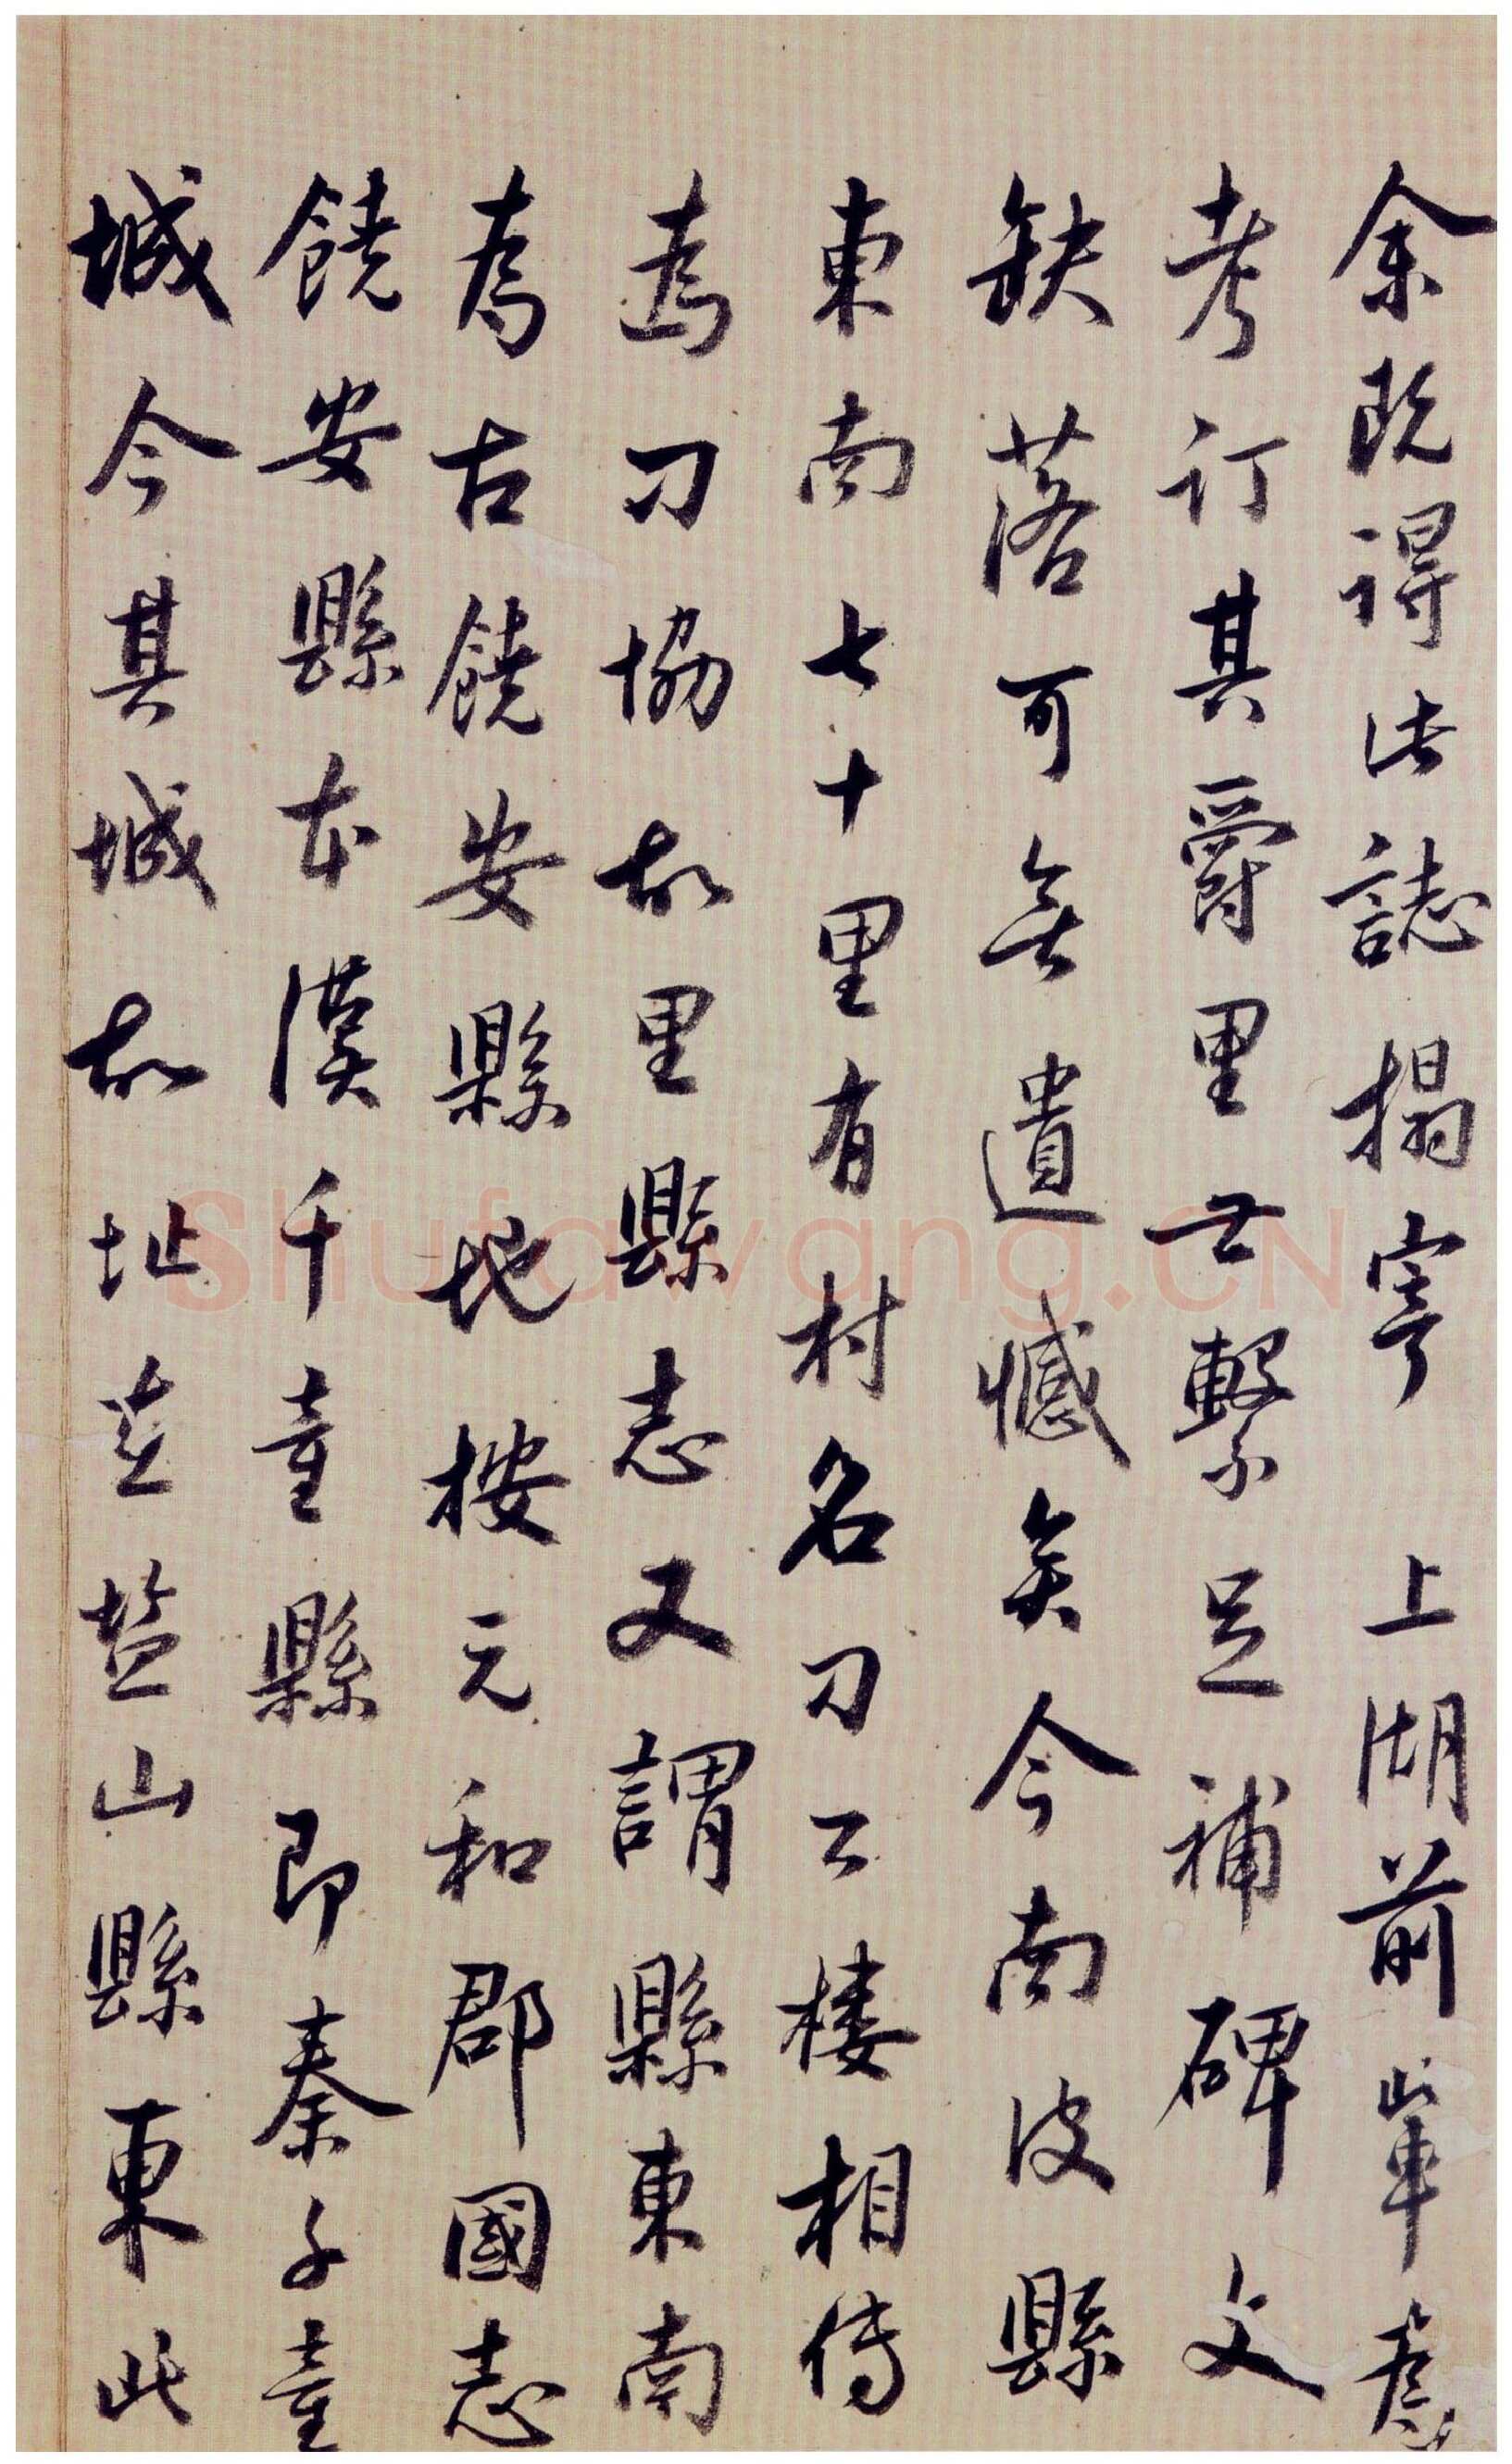 余既得此誌搨寄 上湖前輩為
考訂其爵里世繫足補碑文
缺落可無遺憾矣今南皮縣
東南七十里有村名刁公楼相傳
為刁協故里縣志又謂縣東南
為古饒安縣地按元和郡國志
饒安縣本漢千童縣即秦千童
城今其城故址在盐山縣東此
Shufawang.CN